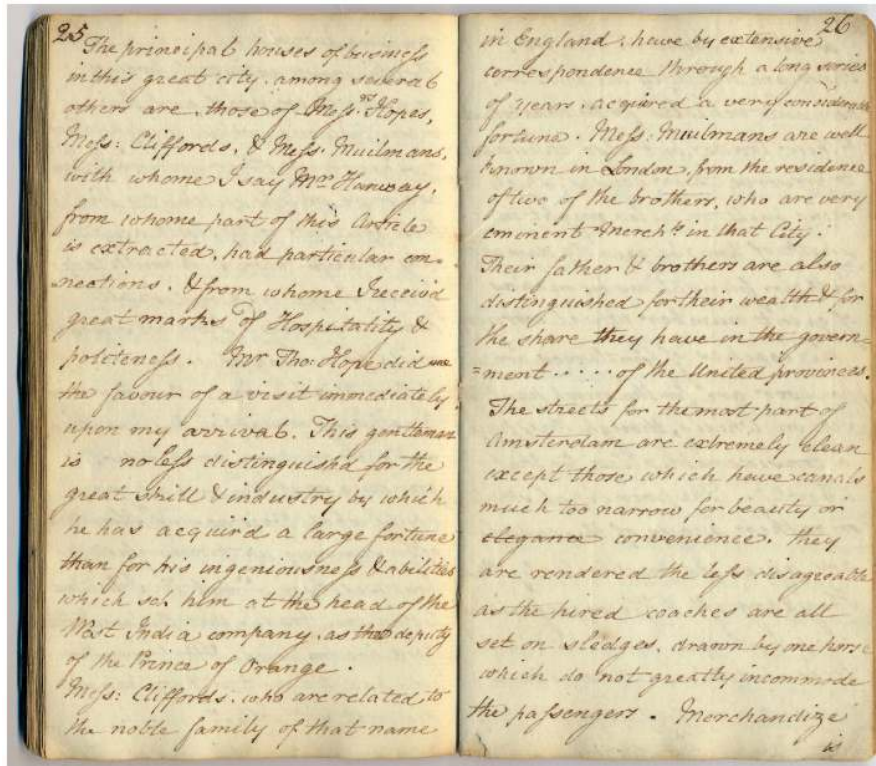 25
The principal houses of business
in this great city, among several
others are, those of Mess.rs Hopes,
Mess: Cliffords, & Mess. Muilmans,
with whome I say Mr Hanway,
from whome part of this Article
is extracted, had particular con-
nections. & from whome I receiv'd
great marks of Hospitality &
politeness. Mr Tho: Hope did me
the favour of a visit immediately
upon my arrival. This gentleman
is no less distinguish'd for the
great skill & industry by which
he has acquir'd a large fortune
than for his ingeniousness & abilities
which set him at the head of the
West India company, as the deputy
of the Prince of Orange.
Mess: Cliffords, who are related to
the noble family of that name
26
in England, have by extensive
correspondence through a long series
of years, acquired a very considerable
fortune. Mess: Muilmans are well
known in London, from the residence
of two of the brothers, who are very
eminent Merch.ts in that City.
Their father & brothers are also
distinguished for their wealth & for
the share they have in the govern=
=ment ..... of the United provinces.
The streets for the most part of
Amsterdam are extremely clean
except those which have canals
much too narrow for beauty or
elegance convenience. they
are rendered the less disagreable
as the hired coaches are all
set on sledges, drawn by one horse
which do not greatly incommode
the passengers. Merchandize
is